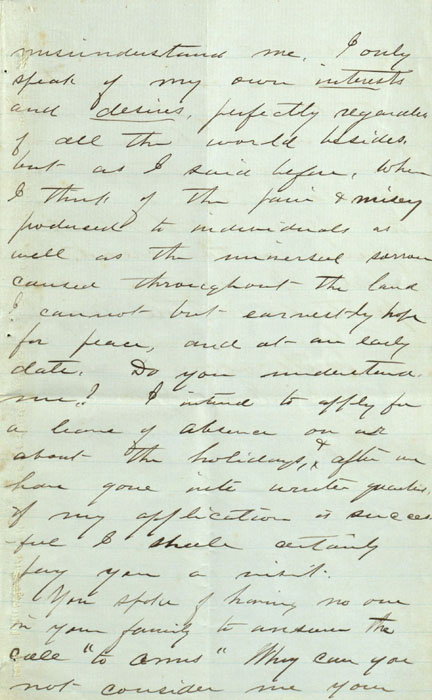 misunderstand me. I only
speak of my own interests
and desires, perfectly regardless
of all the world besides.
but as I said before, when
I think of the pain & misery
produced to individuals as
well as the universal sorrow
caused throughout the land
I cannot but earnestly hope
for peace, and at an early
date. Do you understand
me? I intend to apply for
a leave of absence on or
about the holidays, & after we
have gone into winter quarters.
If my application is success
-ful I shall certainly
pay you a visit.
You spoke of having no one
in your family to answer the
call "to arms" Why can you
not consider me your